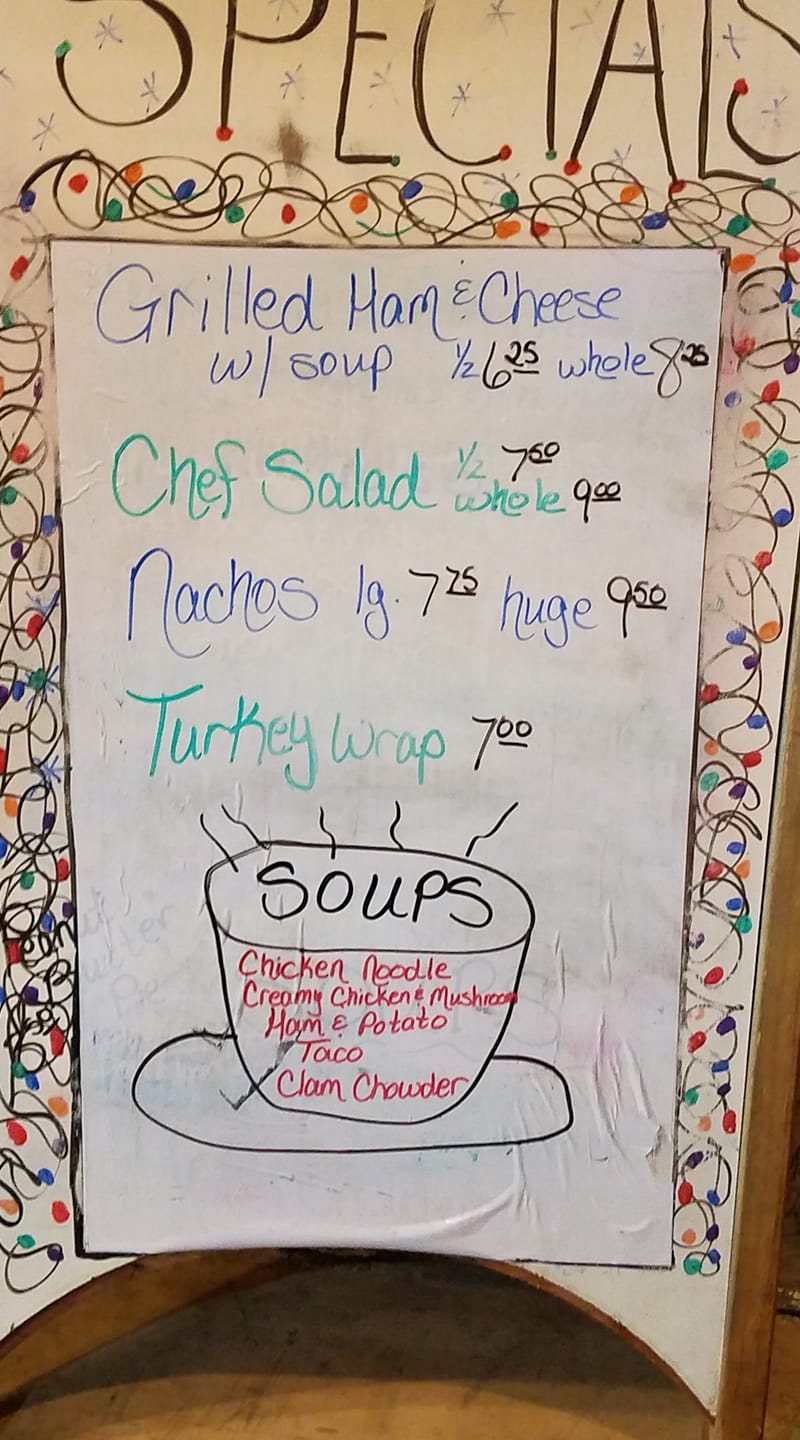 SPECIALS
Grilled Ham & Cheese
w/ soup ½ 6 25 whole 8 25
Chef Salad ½ 7 50
whole 9 00
Nachos lg. 7 75 huge 9 50
Turkey Wrap 7 00
SOUPS
Chicken Noodle
Creamy Chicken & Mushroom
Ham & Potato
Taco
Clam Chowder